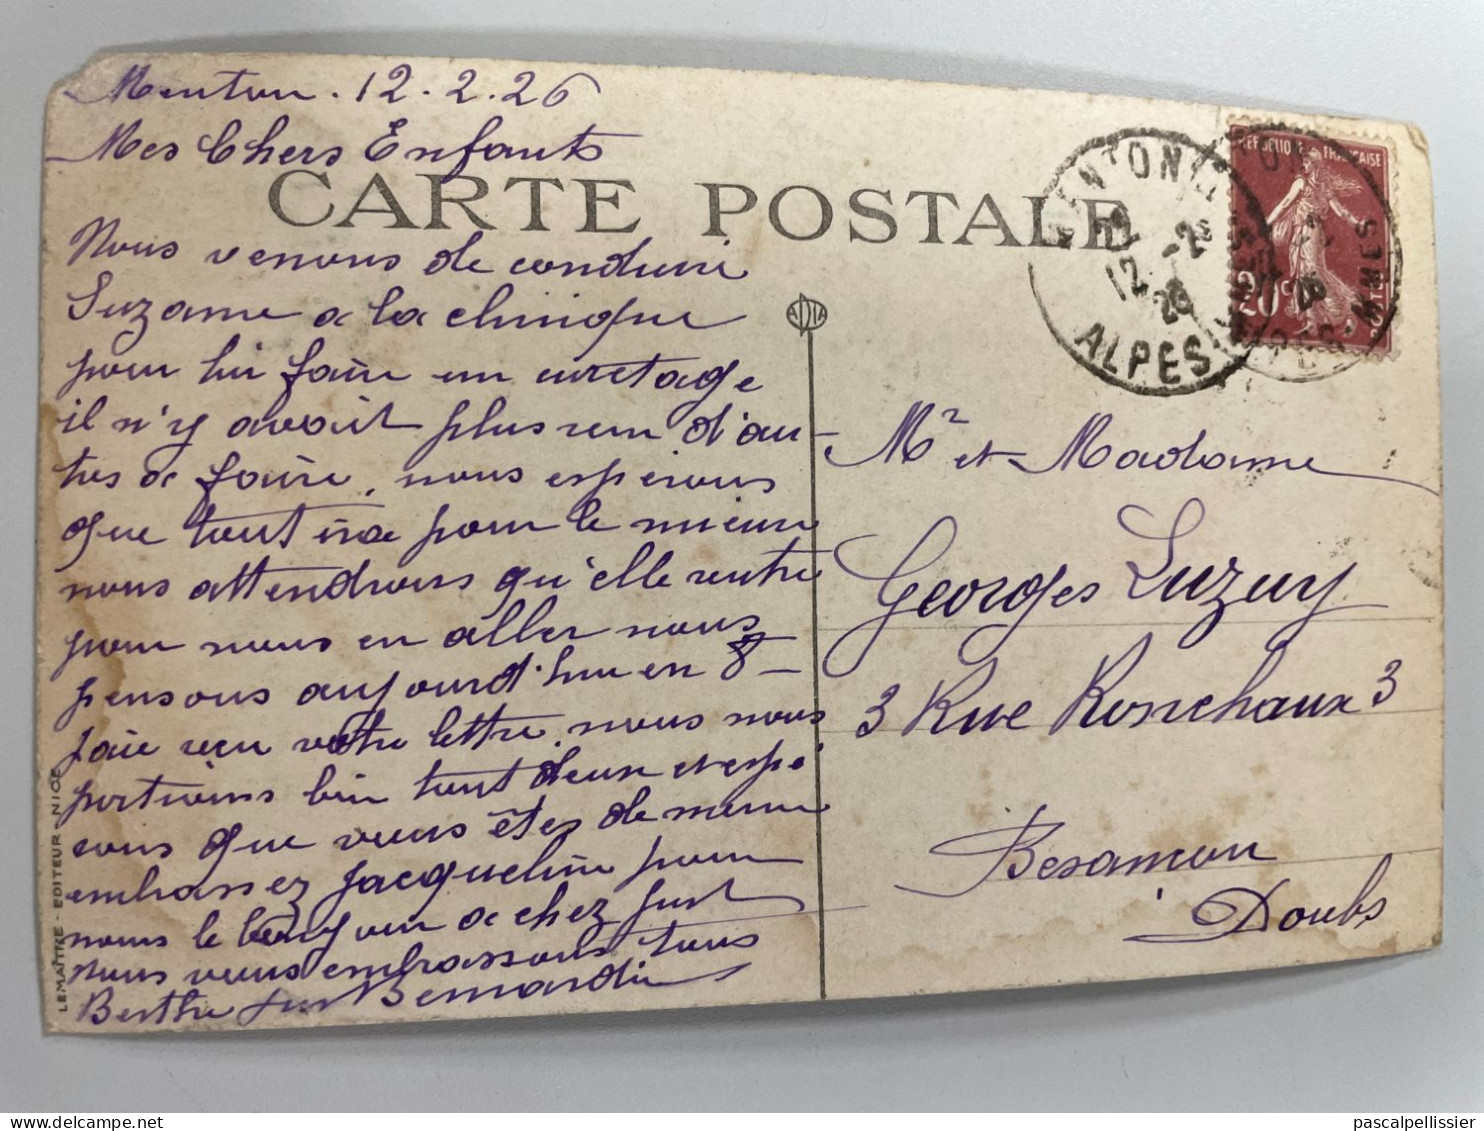 Menton. 12. 2. 26
Mes Chers Enfants
CARTE POSTALE
Nous venons de conduire
Suzanne a la clinique
pour lui faire un curetage
il n'y avait plus rien d'au-
tres a faire, nous esperons
que tout ira pour le mieux
nous attendrons qu'elle rentre
pour nous en aller nous
pensons aujourd'hui en 8 -
reçu votre lettre, nous nous
portions bien tout deux et espé
rons que vous êtes de meme
embrassez Jacqueline pour
nous le bonjour a chez
nous vous embrassons tous
Berthe Bernardin
LEMAITRE - EDITEUR - NICE
ADIA
REPUBLIQUE FRANÇAISE
20 c
POSTES
MENTON
12 -2
26
ALPES
Mr et Madame
Georges Suzuy
3 Rue Ronchaux 3
Besancon
Doubs
pascalpellissier